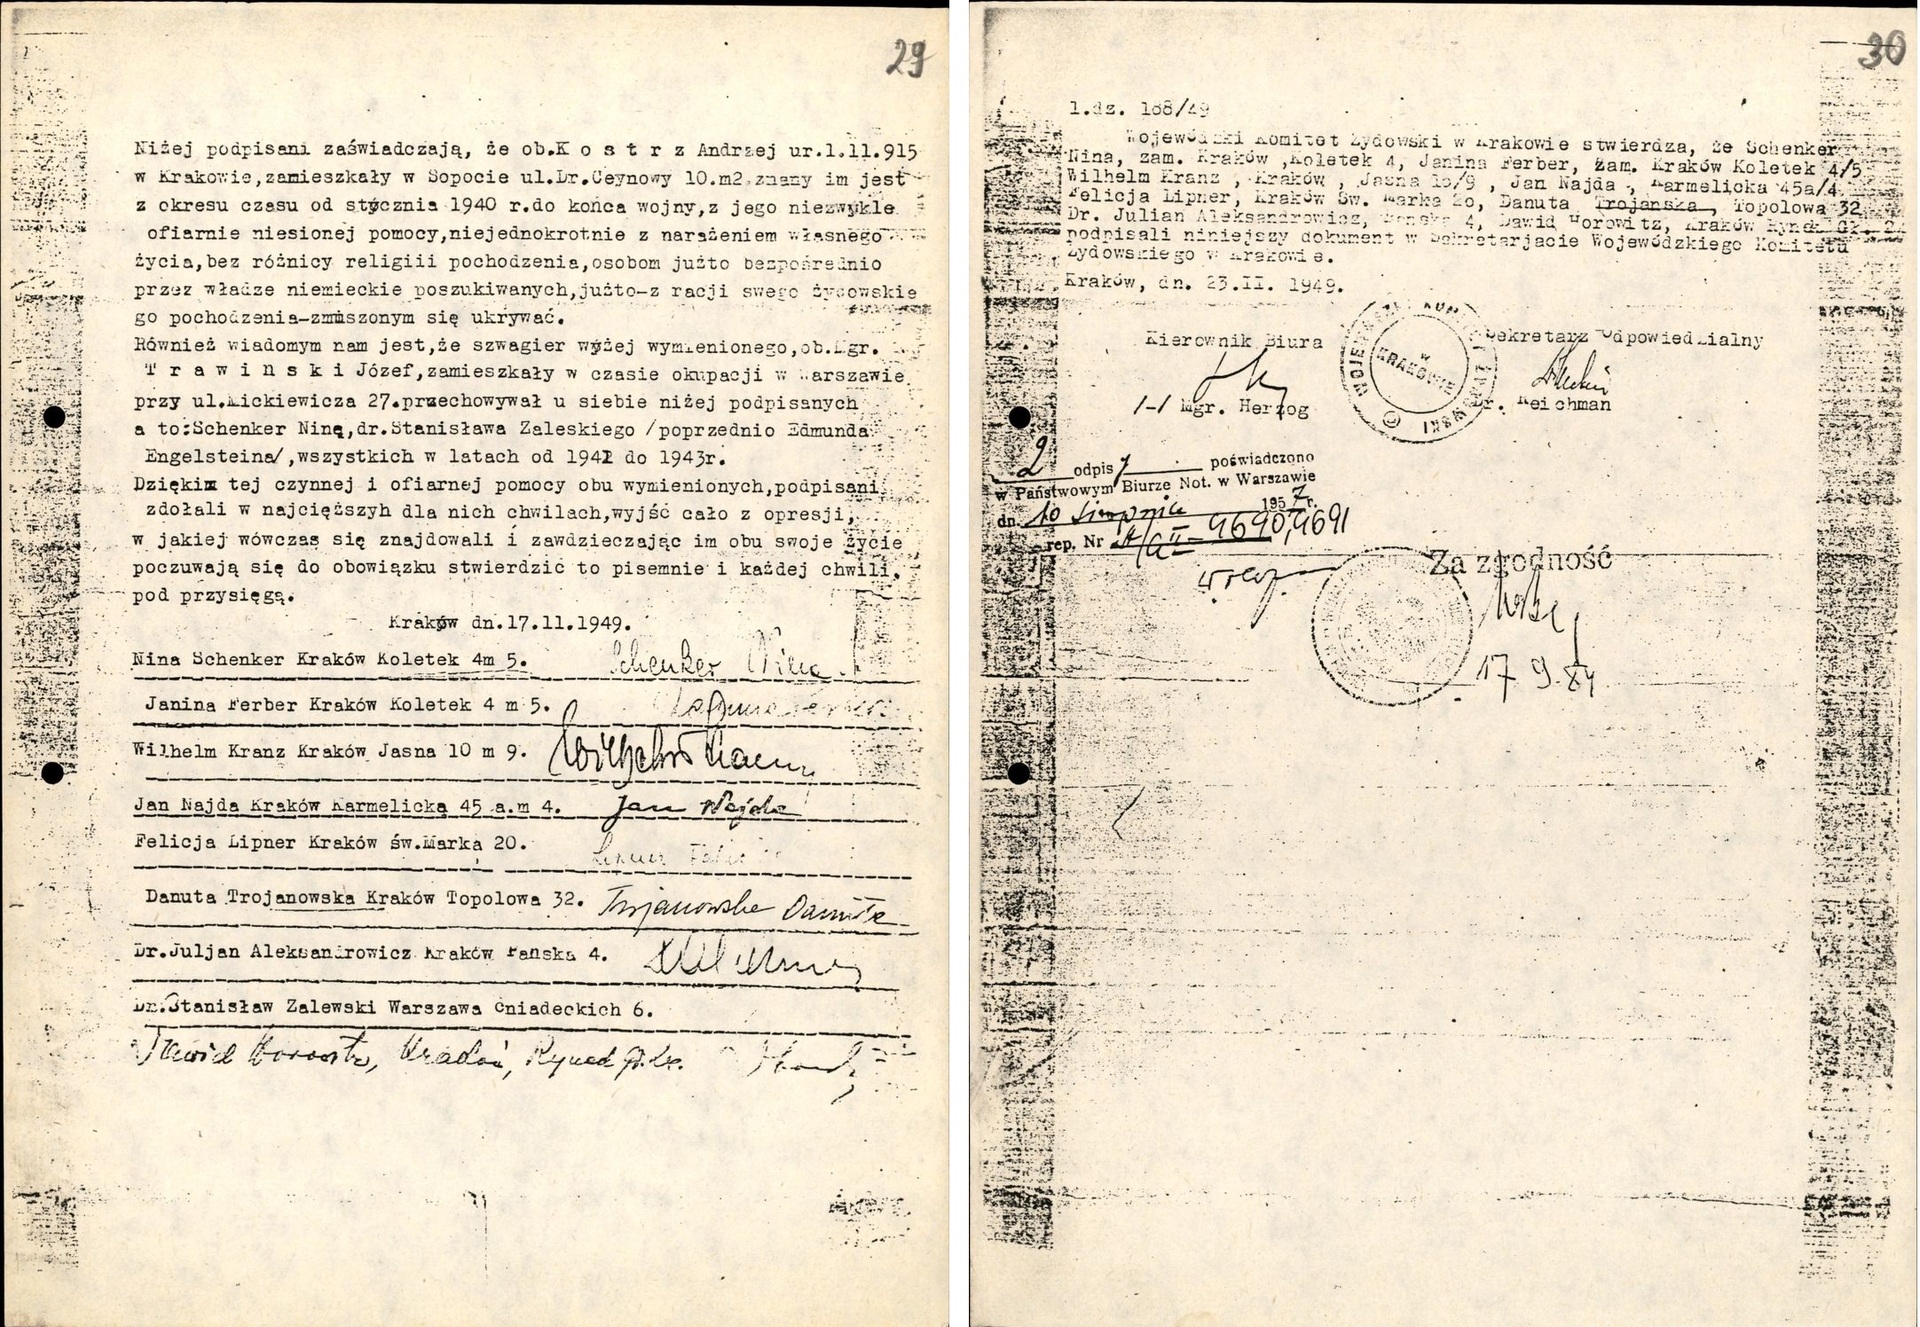 29
Niżej podpisani zaświadczają, że ob.K o s t r z Andrzej ur.1.11.915
w Krakowie,zamieszkały w Sopocie ul.Dr.Ceynowy 10.m2.znany im jest
z okresu czasu od stycznia 1940 r.do końca wojny,z jego niezwykle
ofiarnie niesionej pomocy,niejednokrotnie z narażeniem własnego
życia,bez różnicy religiii pochodzenia,osobom jużto bezpośrednio
przez władze niemieckie poszukiwanych,jużto-z racji swego żydowskie
go pochodzenia-zmuszonym się ukrywać.
Również wiadomym nam jest,że szwagier wyżej wymienionego,ob.Mgr.
T r a w i n s k i Józef,zamieszkały w czasie okupacji w Warszawie
przy ul.Mickiewicza 27.przechowywał u siebie niżej podpisanych
a to:Schenker Ninę,dr.Stanisława Zaleskiego /poprzednio Edmunda
Engelsteina/,wszystkich w latach od 1942 do 1943r.
Dziękim tej czynnej i ofiarnej pomocy obu wymienionych,podpisani
zdołali w najcięższyh dla nich chwilach,wyjść cało z opresji,
w jakiej wówczas się znajdowali i zawdzieczając im obu swoje życie
poczuwają się do obowiązku stwierdzić to pisemnie i każdej chwili,
pod przysięgą.
Kraków dn.17.11.1949.
Nina Schenker Kraków Koletek 4m 5. Schenker Nina
Janina Ferber Kraków Koletek 4 m 5.
Wilhelm Kranz Kraków Jasna 10 m 9. Wilhelm Kranz
Jan Najda Kraków Karmelicka 45 a.m 4. Jan Najda
Felicja Lipner Kraków św.Marka 20. Lipner Felic
Danuta Trojanowska Kraków Topolowa 32. Trojanowska Danuta
Dr.Juljan Aleksandrowicz Kraków Pańska 4.
Dr.Stanisław Zalewski Warszawa Śniadeckich 6.
Dawid Horowitz, Kraków, Rynek Gł.
30
l.dz. 168/49
Wojewódzki Komitet Żydowski w Krakowie stwierdza, że Schenker
Nina, zam. Kraków ,Koletek 4, Janina Ferber, zam. Kraków Koletek 4/5
Wilhelm Kranz , Kraków , Jasna 10/9 , Jan Najda , Karmelicka 45a/4
Felicja Lipner, Kraków Św. Marka 20, Danuta Trojańska , Topolowa 32
Dr. Julian Aleksandrowicz, Pańska 4, Dawid Horowitz, Kraków Rynek Gł.
podpisali niniejszy dokument w Sekretarjacie Wojewódzkiego Komitetu
Żydowskiego w Krakowie.
Kraków, dn. 23.II. 1949.
Kierownik Biura
Sekretarz Odpowiedzialny
/-/ Mgr. Herzog
Dr. Reichman
W KRAKOWIE
2 odpisy poświadczono
w Państwowym Biurze Not. w Warszawie
dn. 10 sierpnia 1957 r.
rep. Nr II - 9690,9691
Za zgodność
17 9.84